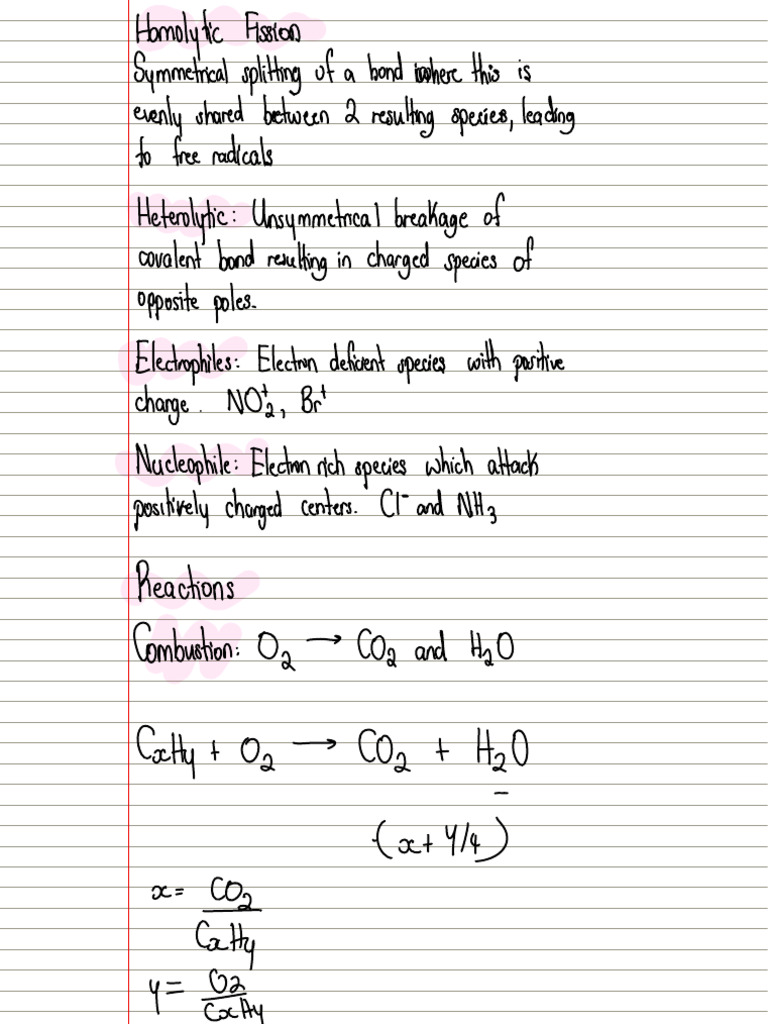 Homolytic Fission
Symmetrical splitting of a bond where this is
evenly shared between 2 resulting species, leading
to free radicals
Heterolytic: Unsymmetrical breakage of
covalent bond resulting in charged species of
opposite poles.
Electrophiles: Electron deficient species with positive
charge. NO₂⁺, Br⁺
Nucleophile: Electron rich species which attack
positively charged centers. Cl⁻ and NH₃
Reactions
Combustion: O₂ → CO₂ and H₂O
CxHy + O₂ → CO₂ + H₂O
(x + y/4)
x = CO₂ / CxHy
y = O₂ / CxHy